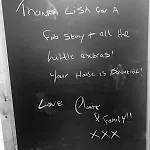 Thanks Lisa for A
Fab stay & all the
little extras!
Your House is Beautiful!
Love Claire
& Family!!
xxx